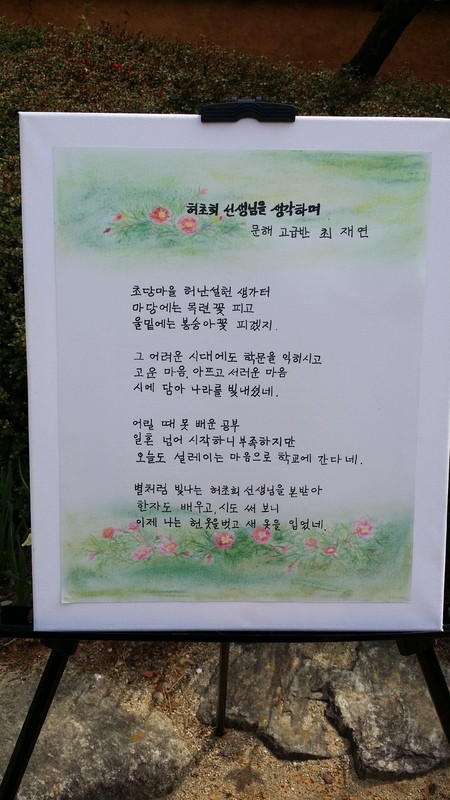 허초희 선생님을 생각하며
문해 고급반 최 재연
초당마을 허난설헌 생가터
마당에는 목련꽃 피고
울밑에는 봉숭아꽃 피겠지.
그 어려운 시대에도 학문을 익히시고
고운 마음, 아프고 서러운 마음
시에 담아 나라를 빛내셨네.
어릴 때 못 배운 공부
일흔 넘어 시작하니 부족하지만
오늘도 설레이는 마음으로 학교에 간다네.
별처럼 빛나는 허초희 선생님을 본받아
한자도 배우고, 시도 써 보니
이제 나는 헌 옷을벗고 새 옷을 입었네.